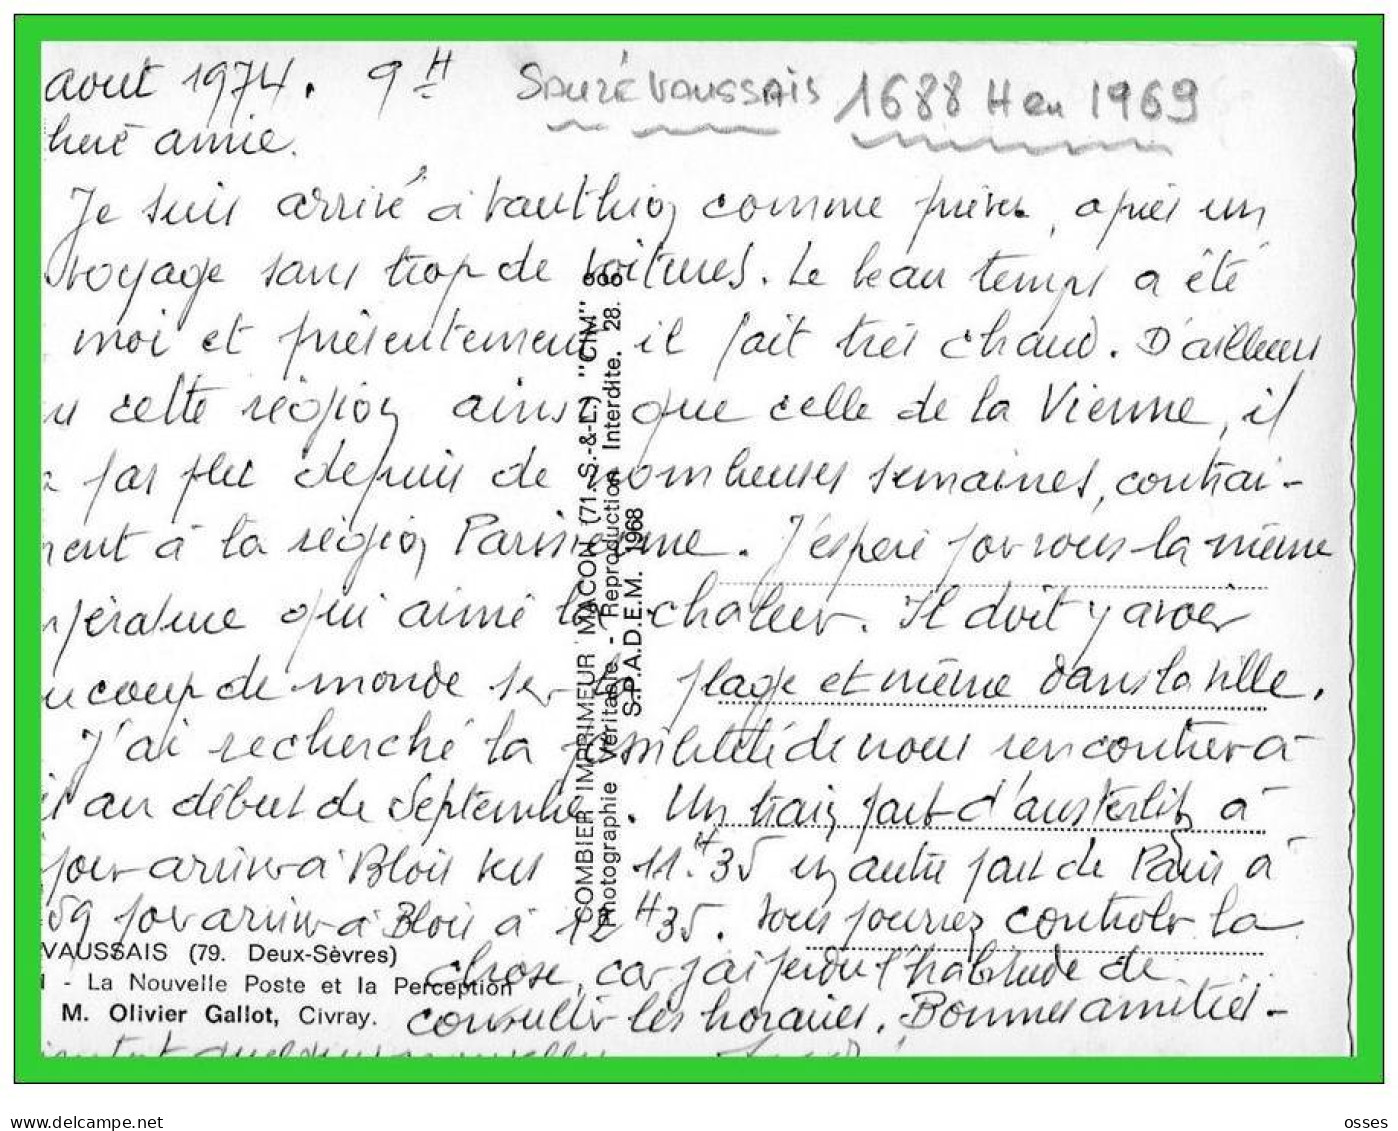 aout 1974. 9H
Sauzé Vaussais 1688 H en 1969
amie.
Je suis arrivé à Vauthion comme prévu, après un
voyage sans trop de voitures. Le beau temps a été
moi et présentement il fait très chaud. D'ailleurs
cette région ainsi que celle de la Vienne, il
pas plu depuis de nombreuses semaines, contrai-
à la région Parisienne. J'espère pour vous la même
qui aime la chaleur. Il doit y avoir
de monde sur la plage et même dans la ville.
J'ai recherché la possibilité de nous rencontrer à
au début de Septembre. Un train part d'austerlitz à
pour arriver à Blois vers 11.H35 un autre part de Paris à
59 pour arriver à Blois à 12H35. Vous pourrez controler la
chose, car j'ai perdu l'habitude de
consulter les horaires. Bonnes amitiés -
VAUSSAIS (79. Deux-Sèvres)
- La Nouvelle Poste et la Perception
M. Olivier Gallot, Civray.
COMBIER IMPRIMEUR MACON (71. S.-&-L.) "CIM"
Photographie Véritable - Reproduction Interdite. 28.
S.P.A.D.E.M. 1968
www.delcampe.net
osses